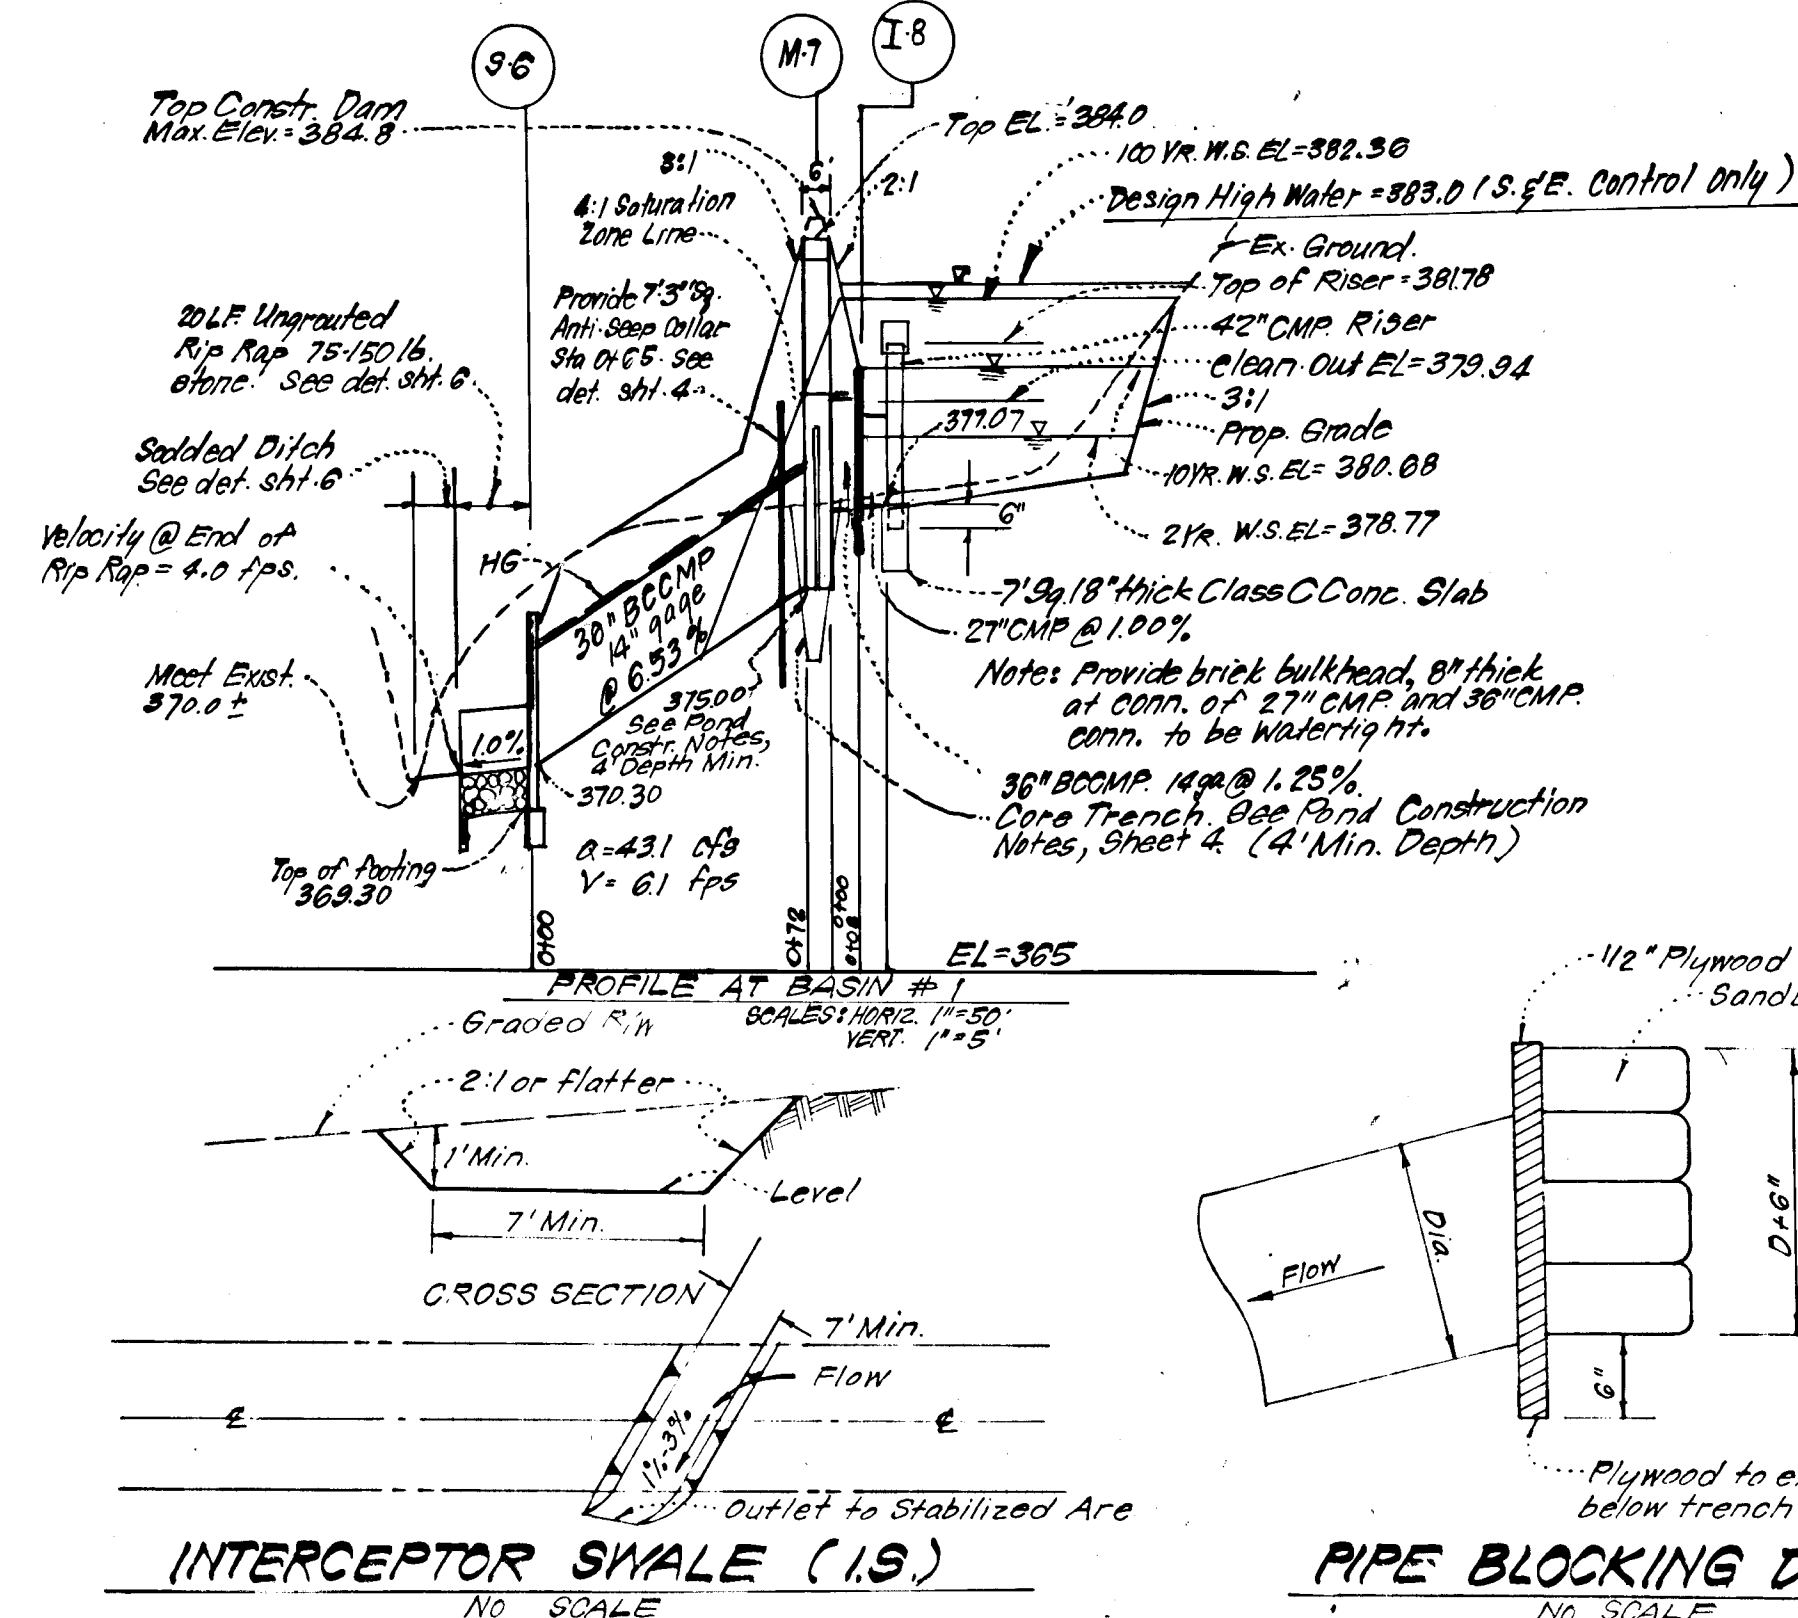 S-6
M-7
I-8
Top Constr. Dam
Max. Elev. = 384.8
Top EL. = 384.0
100 YR. W.S. EL=382.36
Design High Water = 383.0 (S.&E. Control Only)
3:1
6'
2:1
4:1 Saturation
Zone Line
Ex. Ground.
Top of Riser = 381.78
42" CMP. Riser
Clean-Out EL=379.94
3:1
Prop. Grade
10YR. W.S. EL= 380.68
2 YR. W.S. EL= 378.77
377.07
6"
Provide 7'-3" Sq.
Anti-Seep Collar
Sta 0+65. See
det. sht. 4
20 L.F. Ungrouted
Rip Rap 75-150 lb.
stone. See det. sht. 6
Sodded Ditch
See det. sht. 6
Velocity @ End of
Rip Rap = 4.0 fps.
HG
30" BCCMP
14" gage
@ 6.53%
7' Sq. 18" thick Class C Conc. Slab
27" CMP @ 1.00%
Note: Provide brick bulkhead, 8" thick
at conn. of 27" CMP. and 36" CMP.
conn. to be Watertight.
Meet Exist.
370.0 ±
1.0%
375.00
See Pond
Constr. Notes,
4' Depth Min.
370.30
36" BCCMP. 14ga @ 1.25%.
Core Trench. See Pond Construction
Notes, Sheet 4. (4' Min. Depth)
Top of footing
369.30
Q = 43.1 cfs
V = 6.1 fps
0+00
0+72
0+00
0+08
EL=365
PROFILE AT BASIN # 1
SCALES: HORIZ. 1"=50'
VERT. 1"=5'
Graded R/W
2:1 or flatter
1' Min.
Level
7' Min.
CROSS SECTION
7' Min.
Flow
℄
℄
1%-3%
Outlet to Stabilized Are
INTERCEPTOR SWALE (I.S.)
NO SCALE
1/2" Plywood
Sand
Dia.
Flow
D+6"
6"
Plywood to e
below trench
PIPE BLOCKING D
NO SCALE